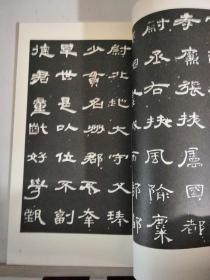 孝廉張掖屬國都
尉丞右扶風隃麋
尉北地大守父琫
少貫名州郡不幸
早世是以位不副
德君童齔好學甄